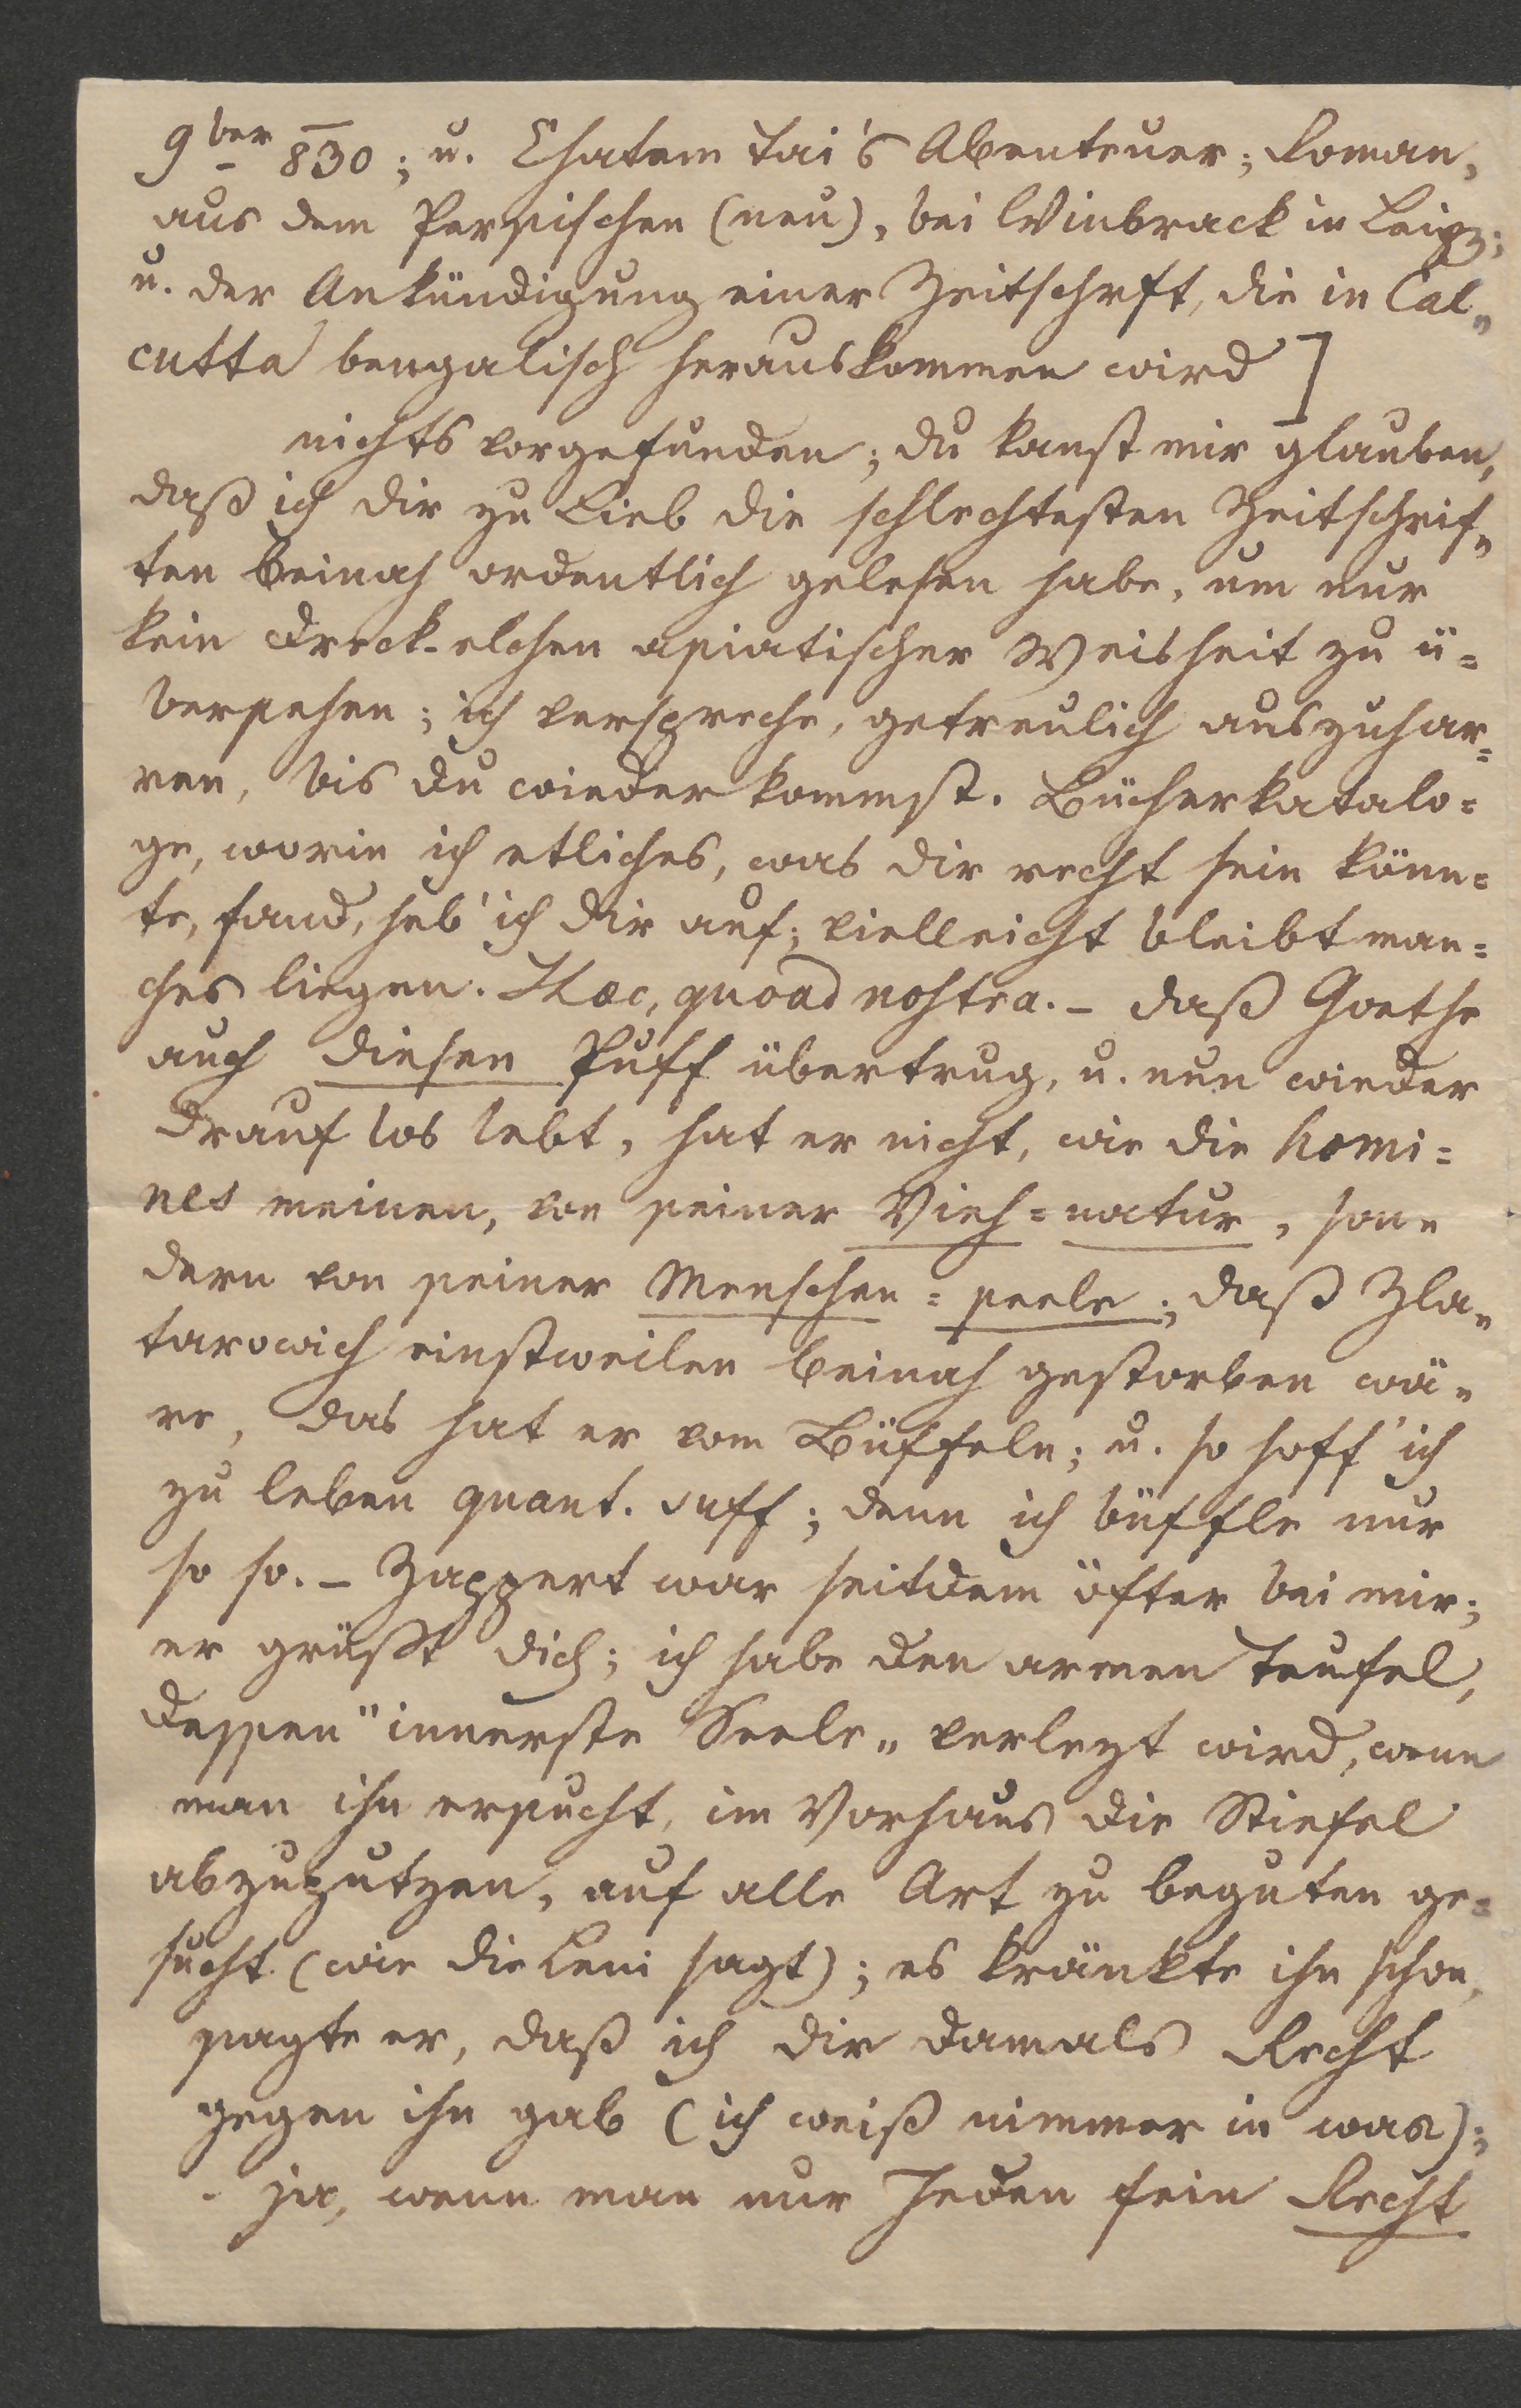 9ber 830; u. Chatem Tai's Abenteuer; Roman,
aus dem Persischen (neu), bei Winbrack in Leipz;
u. der Ankündigung einer Zeitschrft, die in Cal„
cutta bengalisch herauskommen wird]
nichts vorgefunden; du kanst mir glauben,
daß ich dir zu Lieb die schlechtesten Zeitschrif„
ten beinah ordentlich gelesen habe, um nur
kein Dreck-elchen asiatischer Weisheit zu ü=
bersehen; ich verspreche, getreulich auszuhar=
ren, bis du wieder kommst. Bücherkatalo=
ge, worin ich etliches, was dir recht sein könn=
te, fand, heb' ich dir auf; vielleicht bleibt man=
ches liegen. Haec, quoad nostra. – daß Goethe
auch diesen Puff übertrug, u. nun wieder
drauf los lebt, hat er nicht, wie die homi=
nes meinen, von seiner Vieh=natur, son„
dern von seiner Menschen=seele; daß Zla„
tarowich einstweilen beinah gestorben wä„
re, das hat er vom Büffeln; u. so hoff' ich
zu leben quant. suff; denn ich büffle nur
so so. – Zappert war seitdem öfter bei mir;
er grüßt dich; ich habe den armen Teufel,
dessen "innerste Seele„ verlezt wird, wenn
man ihn ersucht, im Vorhaus die Stiefel
abzuputzen, auf alle Art zu beguten ge=
sucht (wie die Leni sagt); es kränkte ihn schon,
sagte er, daß ich dir damals Recht
gegen ihn gab (ich weiß nimmer in was);
- ja, wenn man nur Jeden sein Recht